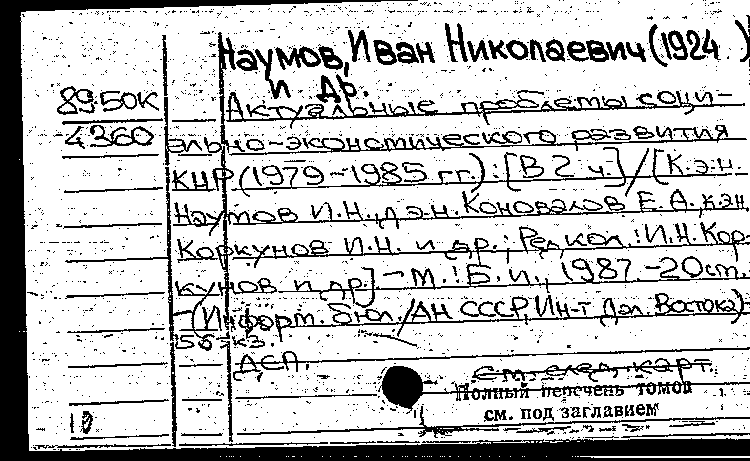 Наумов, Иван Николаевич (1924 )
и др.
89-50К Актуальные проблемы соци-
4360 ально-экономического развития
КНР (1979-1985 гг.) : [В 2 ч.] / [К.э.н.
Наумов И.Н., д.э.н. Коновалов Е.А., к.э.н.
Коркунов И.Н. и др.; Редкол.: И.Н. Кор-
кунов и др.] - М.: Б.и., 1987. - 20 см.
- (Информ. бюл. / АН СССР, Ин-т Дал. Востока)
экз.
ДСП.
см. след. карт.
Полный перечень томов
см. под заглавием
10